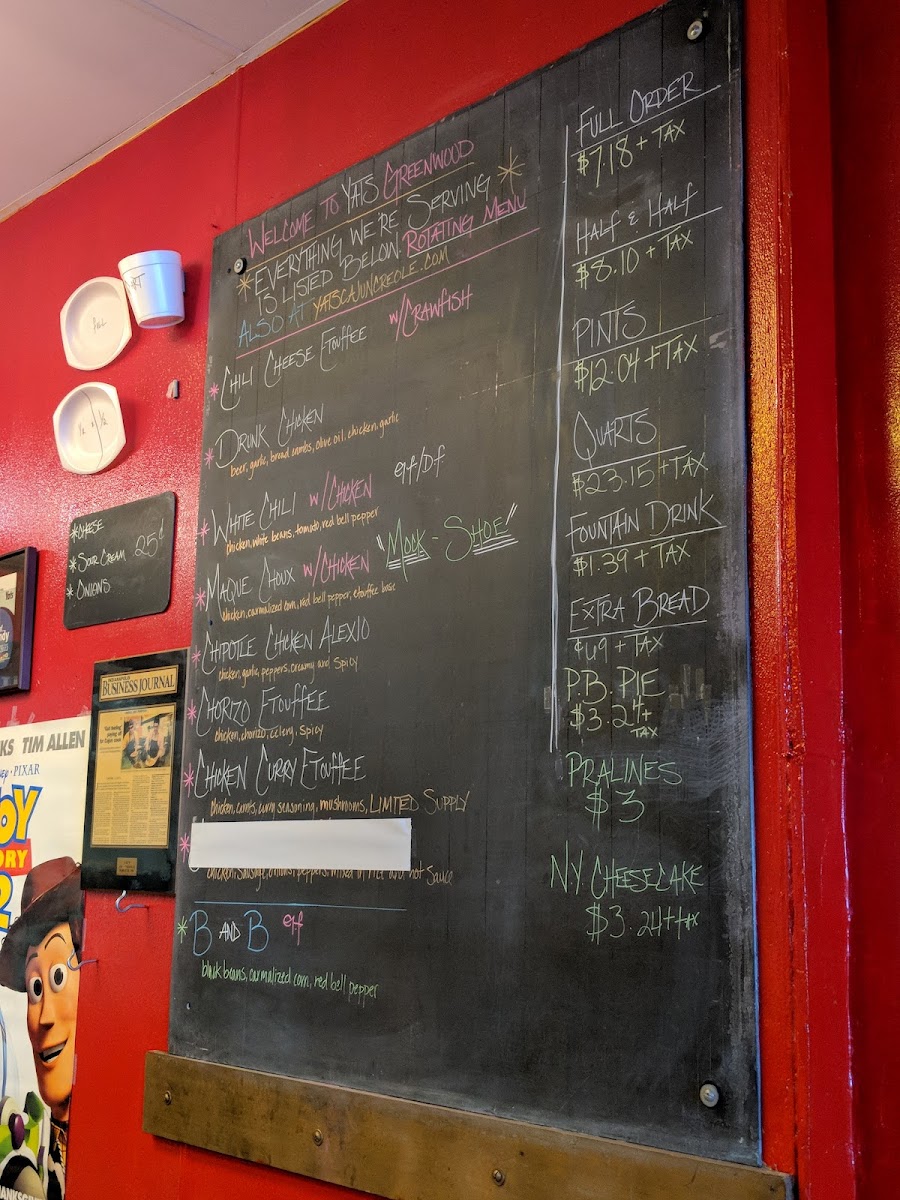 WELCOME TO YATS GREENWOOD
*EVERYTHING WE'RE SERVING*
IS LISTED BELOW. ROTATING MENU
ALSO AT YATSCAJUNCREOLE.COM
*CHILI CHEESE ETOUFFEE W/CRAWFISH
*DRUNK CHICKEN
beer, garlic, bread crumbs, olive oil, chicken, garlic
*WHITE CHILI W/CHICKEN gf/DF
chicken, white beans, tomato, red bell pepper
*MAQUE CHOUX W/CHICKEN "MOCK-SHOE"
chicken, carmalized corn, red bell pepper, etouffee base
*CHIPOTLE CHICKEN ALEXIO
chicken, garlic, peppers, creamy and spicy
*CHORIZO ETOUFFEE
chicken, chorizo, celery, spicy
*CHICKEN CURRY ETOUFFEE
chicken, carrots, curry seasoning, mushrooms, LIMITED SUPPLY
*
chicken, sausage, onions, peppers, mixed in rice and hot sauce
*B AND B gf
black beans, carmalized corn, red bell pepper
FULL ORDER
$7.18 + TAX
HALF & HALF
$8.10 + TAX
PINTS
$12.04 + TAX
QUARTS
$23.15 + TAX
FOUNTAIN DRINK
$1.39 + TAX
EXTRA BREAD
¢.49 + TAX
P.B. PIE
$3.24 +
TAX
PRALINES
$3
N.Y. CHEESECAKE
$3.24 + tax
Full
1/2 & 1/2
*CHEESE
*SOUR CREAM 25¢
*ONIONS
INDIANAPOLIS
BUSINESS JOURNAL
KS TIM ALLEN
PIXAR
OY
ORY
2
HANKSG